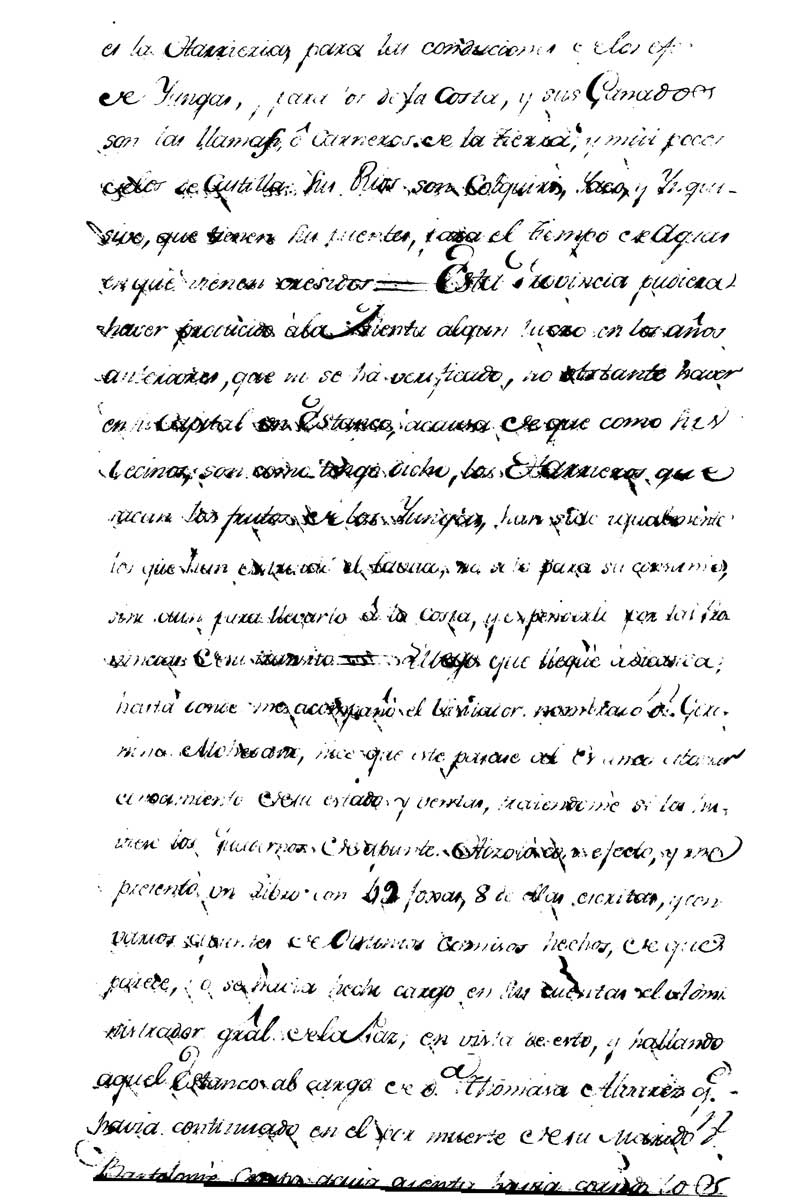 es la Harrieria, para las conduciones de los ef
de Yungas, y para los de la Costa, y sus Ganados
son las llamas, ô Carneros de la tierra, y mui pocos
de los de Castilla. Sus Rios son Colquiri, Yaco, y Ynqui-
sivo, que tienen sus puentes, para el tiempo de Aguas
en que vienen cresidos = Esta Provincia pudiera
haver producido à la Renta algun lucro en los años
anteriores, que no se há verificado, no obstante haver
en su Capital un Estanco, acausa de que como sus
Vecinos, son como tengo dicho, los Harrieros que
sacan los frutos de los Yungas, han sido igualmente
los que han el tavaco, no solo para su consumo,
sino aun para llevarlo á la Costa, y expenderlo por las Pro
vincias de su transito = Luego que lleguè à
hasta donde me acompañó el Visitador nombrado Dn. Gero-
nimo, hice que este pasase al Estanco atomar
conosimiento de su estado, y ventas, traiendome si los hu-
viese los Quadernos de apunte. Hizolo en efecto, y me
presentó un Libro con 42 foxas, 8 de ellas escritas, y con
varios apuntes de Distintos Comisos hechos, de que
parece, se havia hecho cargo en sus cuentas el Admi
nistrador grâl. de la Paz; en vista de esto, y hallando
aquel Estanco al cargo de Da. Thomasa Alvarez qe.
havia continuado en el por muerte de su Marido Dn.
Bartolomé havia lo es